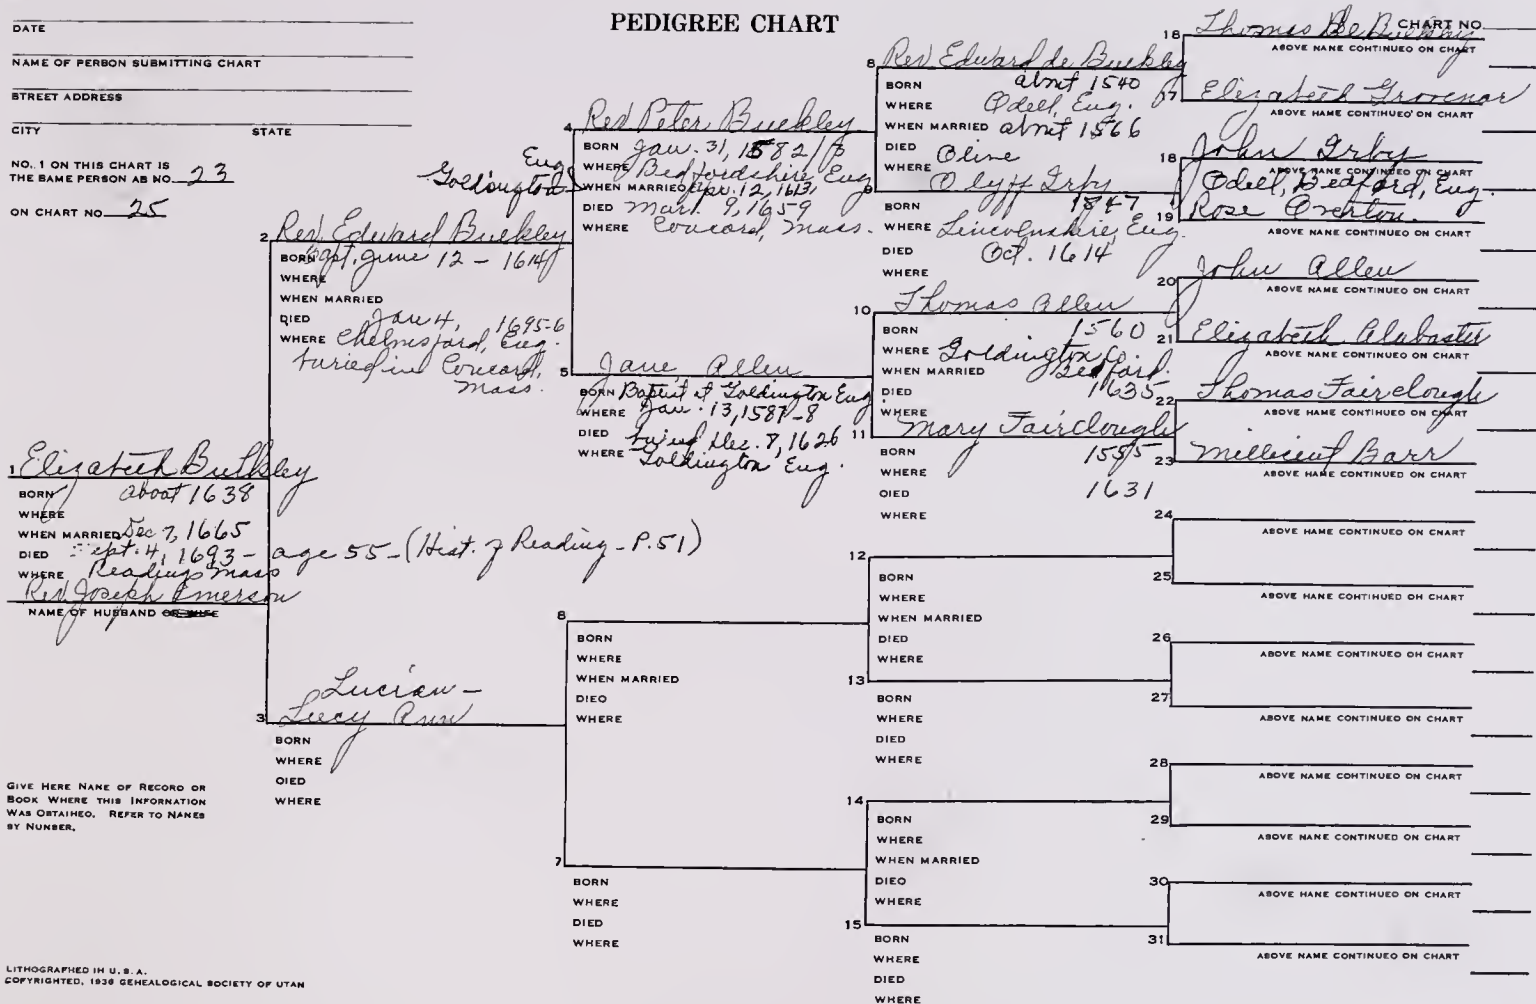 PEDIGREE CHART
DATE
NAME OF PERSON SUBMITTING CHART
STREET ADDRESS
CITY STATE
NO. 1 ON THIS CHART IS
THE SAME PERSON AS NO. 23
ON CHART NO. 25
CHART NO.
1 Elizabeth Bulkley
BORN about 1638
WHERE
WHEN MARRIED Dec 7, 1665
DIED Sept. 4, 1693 - age 55 - (Hist. of Reading - P. 51)
WHERE Reading Mass
Rev Joseph Emerson
NAME OF HUSBAND OR WIFE
2 Rev. Edward Buckley
BORN Bapt. June 12 - 1614
WHERE
WHEN MARRIED
DIED Jan 4, 1695-6
WHERE Chelmsford, Eng.
buried in Concord,
Mass.
3 Lucian -
Lucy Ann
BORN
WHERE
DIED
WHERE
4 Rev Peter Buckley
BORN Jan. 31, 1582/3
WHERE Bedfordshire Eng
Eng
Goldington
WHEN MARRIED Apr. 12, 1613,
DIED Mar. 9, 1659
WHERE Concord, Mass.
5 Jane Allen
BORN Baptist at Goldington Eng
WHERE Jan. 13, 1587-8
DIED buried Dec. 8, 1626
WHERE Goldington Eng.
6
BORN
WHERE
WHEN MARRIED
DIED
WHERE
7
BORN
WHERE
DIED
WHERE
8 Rev Edward de Buckley
BORN about 1540
WHERE Odell, Eng.
WHEN MARRIED about 1566
DIED
WHERE Olive
9 Olyff Irby
BORN 1547
WHERE Lincolnshire, Eng.
DIED Oct. 1614
WHERE
10 Thomas Allen
BORN 1560
WHERE Goldington Co.
WHEN MARRIED Bedford.
DIED 1635
WHERE
11 Mary Fairclough
BORN 1555
WHERE
DIED 1631
WHERE
12
BORN
WHERE
WHEN MARRIED
DIED
WHERE
13
BORN
WHERE
DIED
WHERE
14
BORN
WHERE
WHEN MARRIED
DIED
WHERE
15
BORN
WHERE
DIED
WHERE
16 Thomas
ABOVE NAME CONTINUED ON CHART
17 Elizabeth Grovenor
ABOVE NAME CONTINUED ON CHART
18 John Irby
ABOVE NAME CONTINUED ON CHART
Odell, Bedford, Eng.
19 Rose Overton.
ABOVE NAME CONTINUED ON CHART
20 John Allen
ABOVE NAME CONTINUED ON CHART
21 Elizabeth Alabaster
ABOVE NAME CONTINUED ON CHART
22 Thomas Fairclough
ABOVE NAME CONTINUED ON CHART
23 Millicent Barr
ABOVE NAME CONTINUED ON CHART
24
ABOVE NAME CONTINUED ON CHART
25
ABOVE NAME CONTINUED ON CHART
26
ABOVE NAME CONTINUED ON CHART
27
ABOVE NAME CONTINUED ON CHART
28
ABOVE NAME CONTINUED ON CHART
29
ABOVE NAME CONTINUED ON CHART
30
ABOVE NAME CONTINUED ON CHART
31
ABOVE NAME CONTINUED ON CHART
GIVE HERE NAME OF RECORD OR
BOOK WHERE THIS INFORMATION
WAS OBTAINED. REFER TO NAMES
BY NUMBER.
LITHOGRAPHED IN U. S. A.
COPYRIGHTED, 1936 GENEALOGICAL SOCIETY OF UTAH